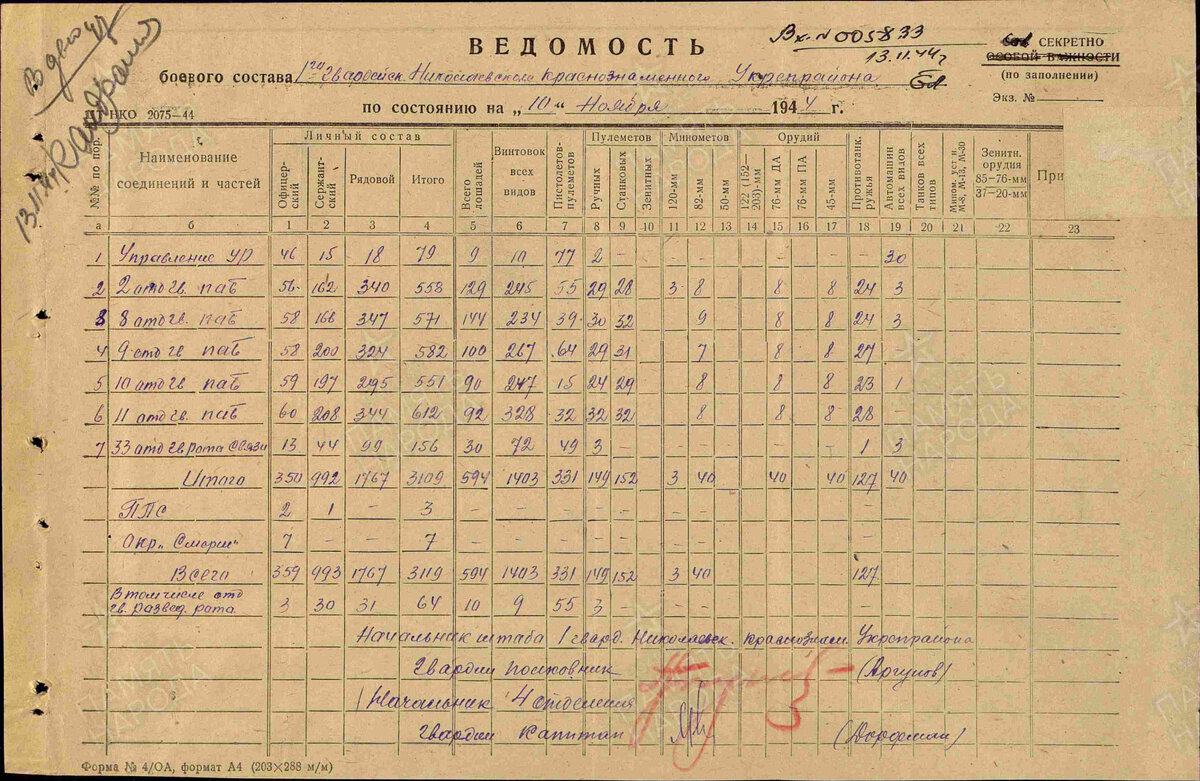 В дело УР
13.11.44
ВЕДОМОСТЬ
Вх. N 005833
13.11.44г
Сов СЕКРЕТНО
ОСОБОЙ ВАЖНОСТИ
(по заполнении)
Экз. №
боевого состава 1го Гвардейск. Николаевского Краснознаменного Укрепрайона
по состоянию на „10“ Ноября 1944 г.
НКО 2075-44
№№ по пор. Наименование соединений и частей Личный состав Офицерский Сержантский Рядовой Итого Всего лошадей Винтовок всех видов Пистолетов-пулеметов Пулеметов Ручных Станковых Зенитных Минометов 120-мм 82-мм 50-мм Орудий 122 (152—203)-мм 76-мм ДА 76-мм ПА 45-мм Противотанк. ружья Автомашин всех видов Танков всех типов Мином. уст-к М-8, М-13, М-30 Зенитн. орудия 85-76-мм 37-20-мм При
а б 1 2 3 4 5 6 7 8 9 10 11 12 13 14 15 16 17 18 19 20 21 22 23
1 Управление УР 46 15 18 79 9 10 77 2 - - - - - - - - - - 30
2 2 отд гв. паб 56 162 340 558 129 245 55 29 28 3 8 8 8 24 3
3 8 отд гв. паб 58 166 347 571 144 234 39 30 32 9 8 8 24 3
4 9 отд гв паб 58 200 324 582 100 267 64 29 31 7 8 8 27
5 10 отд гв паб 59 197 295 551 90 247 15 24 29 8 8 8 23 1
6 11 отд гв. паб 60 208 344 612 92 328 32 32 32 8 8 8 28
7 33 отд гв рота связи 13 44 99 156 30 72 49 3 - - - - - - - - - 1 3
Итого 350 992 1767 3109 594 1403 331 149 152 3 40 40 40 127 40
ППС 2 1 - 3 - - - - - - - - - - - - - - -
Окр „Смерш“ 7 - - 7 - - - - - - - - - - - - - - -
Всего 359 993 1767 3119 594 1403 331 149 152 3 40 127
В том числе отд гв. развед. рота 3 30 31 64 10 9 55 3 - - - - - - - - - - -
Начальник штаба 1 гвард. Николаевск. Краснознам. Укрепрайона
Гвардии полковник (Аргунов)
Начальник 4 отделения
Гвардии Капитан (Дорфман)
Форма № 4/ОА, формат А4 (203×288 м/м)
ПАМЯТЬ НАРОДА